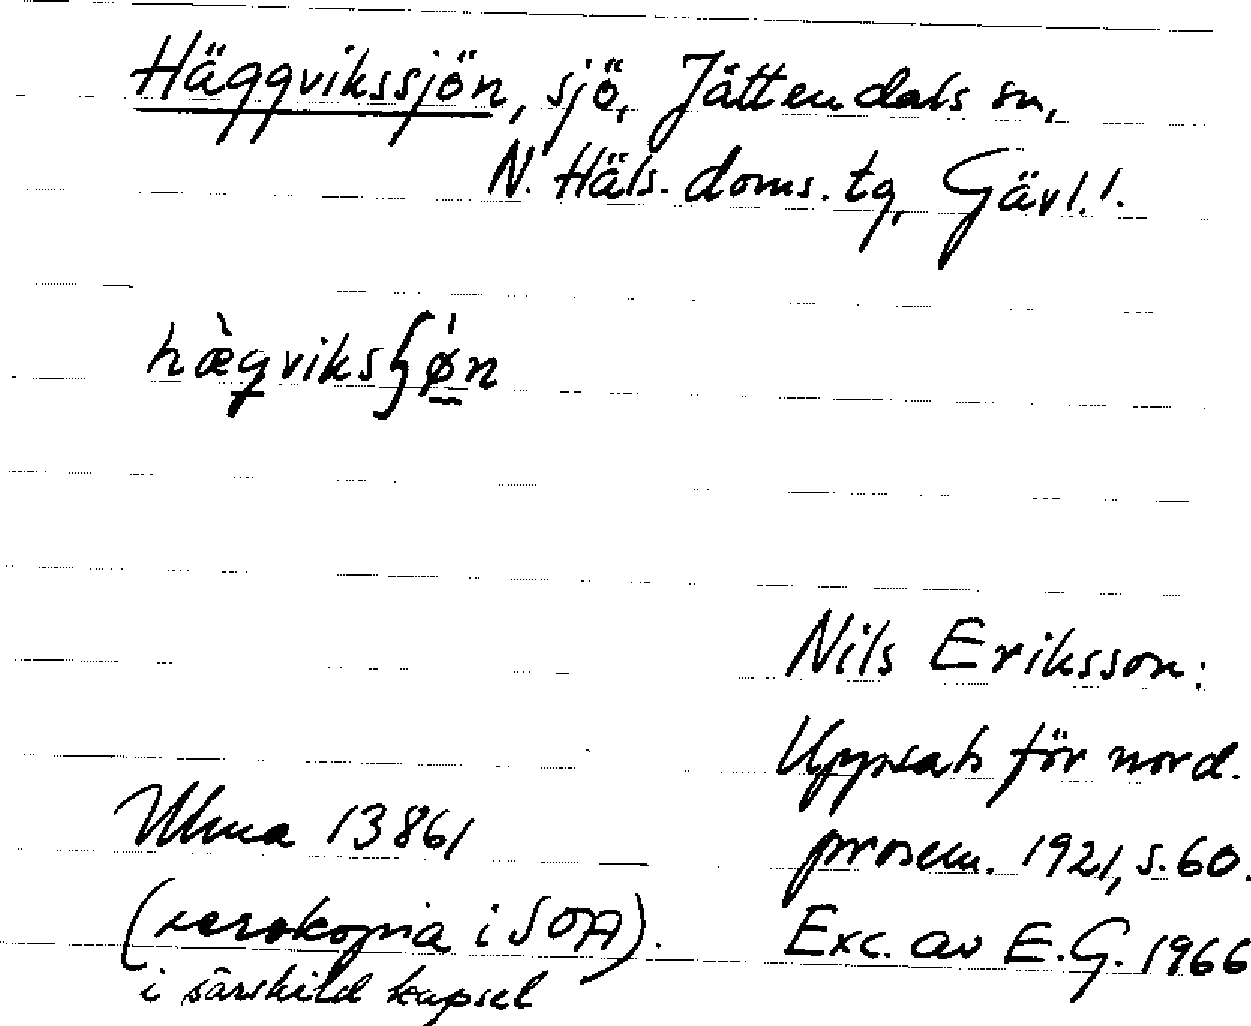 Häggvikssjön, sjö, Jättendals sn,
N. Häls. doms. tg, Gävl. l.
hæ̀gviksʃø̀n
Nils Eriksson:
Uppsats för nord.
prosem. 1921, s. 60.
Exc. av E.G. 1966
Ulma 13861
(xerokopia i SOA).
i särskild kapsel